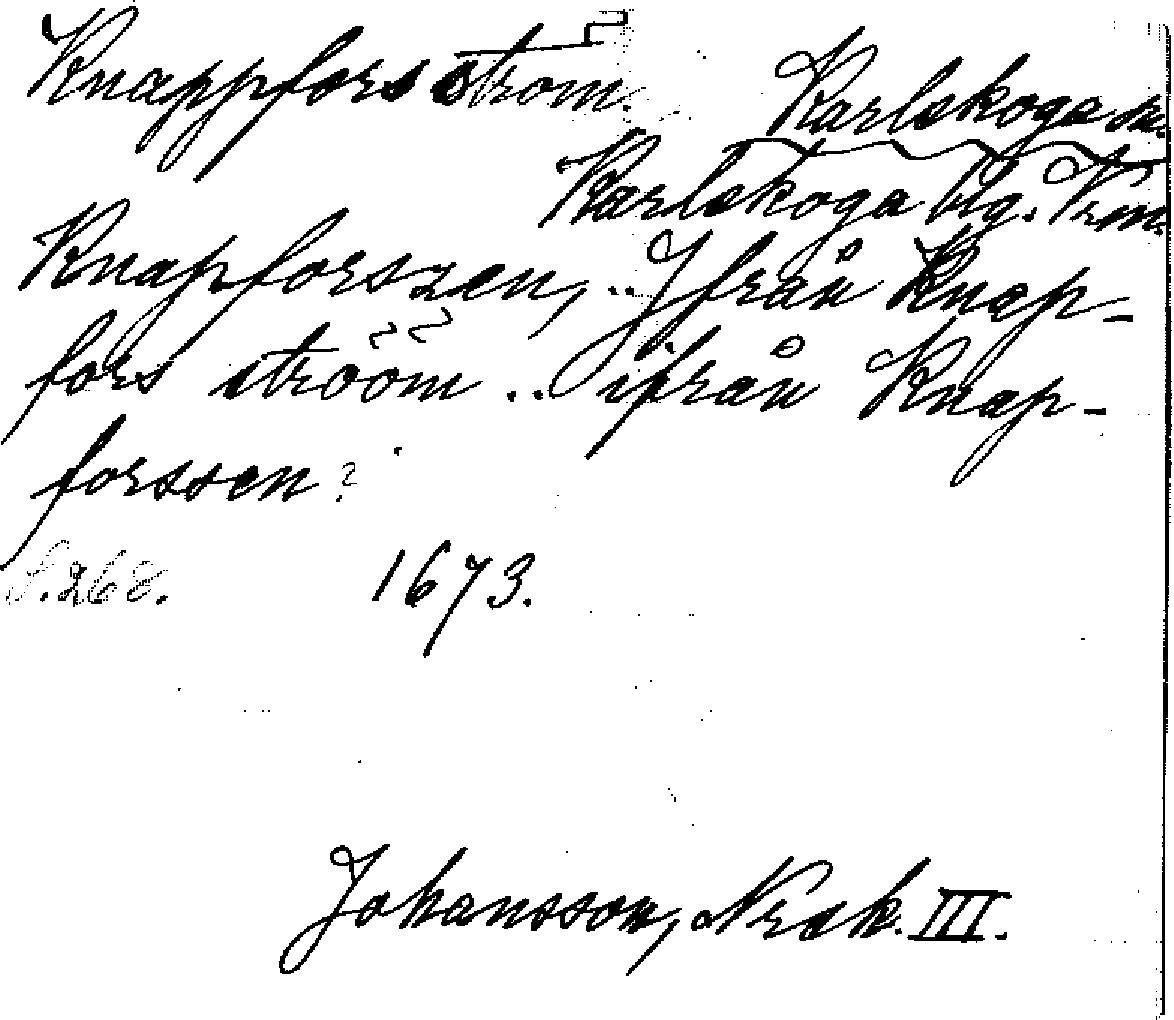 Knappforsström.
Karlskoga sn.
Karlskoga blg. Vrml.
Knapforszen, .. Ifrån Knap-
fors strööm .. ifrån Knap-
forssen?
S. 268. 1673.
Johansson, Norask. III.